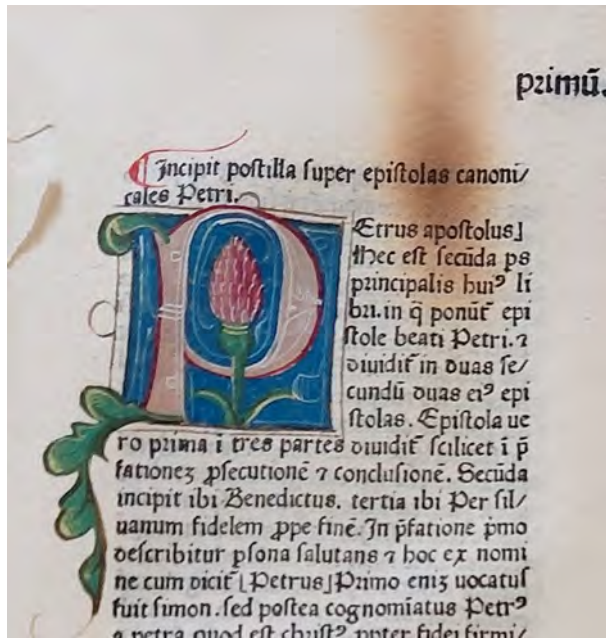 primū.
¶ Incipit postilla super epistolas canoni/
cales Petri.
PEtrus apostolus⌋
⁋hec est secūda ps
principalis huiꝰ li
bri. in q̄ ponūt᷑ epi
stole beati Petri. ⁊
diuidit᷑ in duas se/
cundū duas eiꝰ epi
stolas. Epistola ue
ro prima ī tres partes diuidit᷑ scilicet ī p̄
fationeꝫ ꝓsecutionē ⁊ conclusionē. Secūda
incipit ibi Benedictus. tertia ibi Per sil/
uanum fidelem ꝓpe finē. In p̄fatione pͥmo
describitur ꝑsona salutans ⁊ hoc ex nomi
ne cum dicit᷑ ⌊Petrus⌋ Primo eniꝫ uocatus
fuit simon. sed postea cognomīatus Petrꝰ
a petra quod est christꝰ ꝓpter fidei firmi/